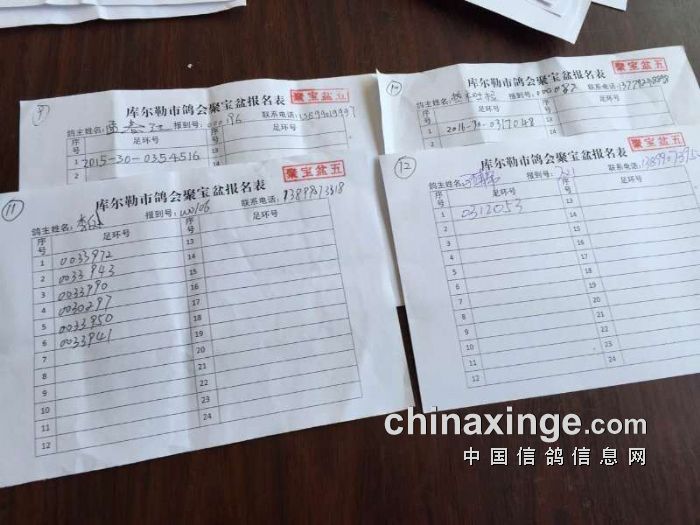 9
库尔勒市鸽会聚宝盆报名表
聚宝盆五
鸽主姓名: 报到号: 000196 联系电话:
序号 足环号 序号 足环号
1 2015-30-0354516 13
2
库尔勒市鸽会聚宝盆报名表
聚宝盆五
鸽主姓名: 报到号: 000087 联系电话:
序号 足环号 序号 足环号
1 2016-30-0317048 13
11
库尔勒市鸽会聚宝盆报名表
聚宝盆五
鸽主姓名: 报到号: 000106 联系电话: 13899873318
序号 足环号 序号 足环号
1 0033972 13
2 0033943 14
3 0033990 15
4 0030297 16
5 0033950 17
6 0033941 18
7 19
8 20
9 21
10 22
11 23
12 24
12
库尔勒市鸽会聚宝盆报名表
聚宝盆五
鸽主姓名: 报到号: 联系电话:
序号 足环号 序号 足环号
1 0312053 13
2 14
3 15
4 16
5 17
6 18
7 19
8 20
9 21
10 22
11 23
12 24
chinaxinge.com
中国信鸽信息网